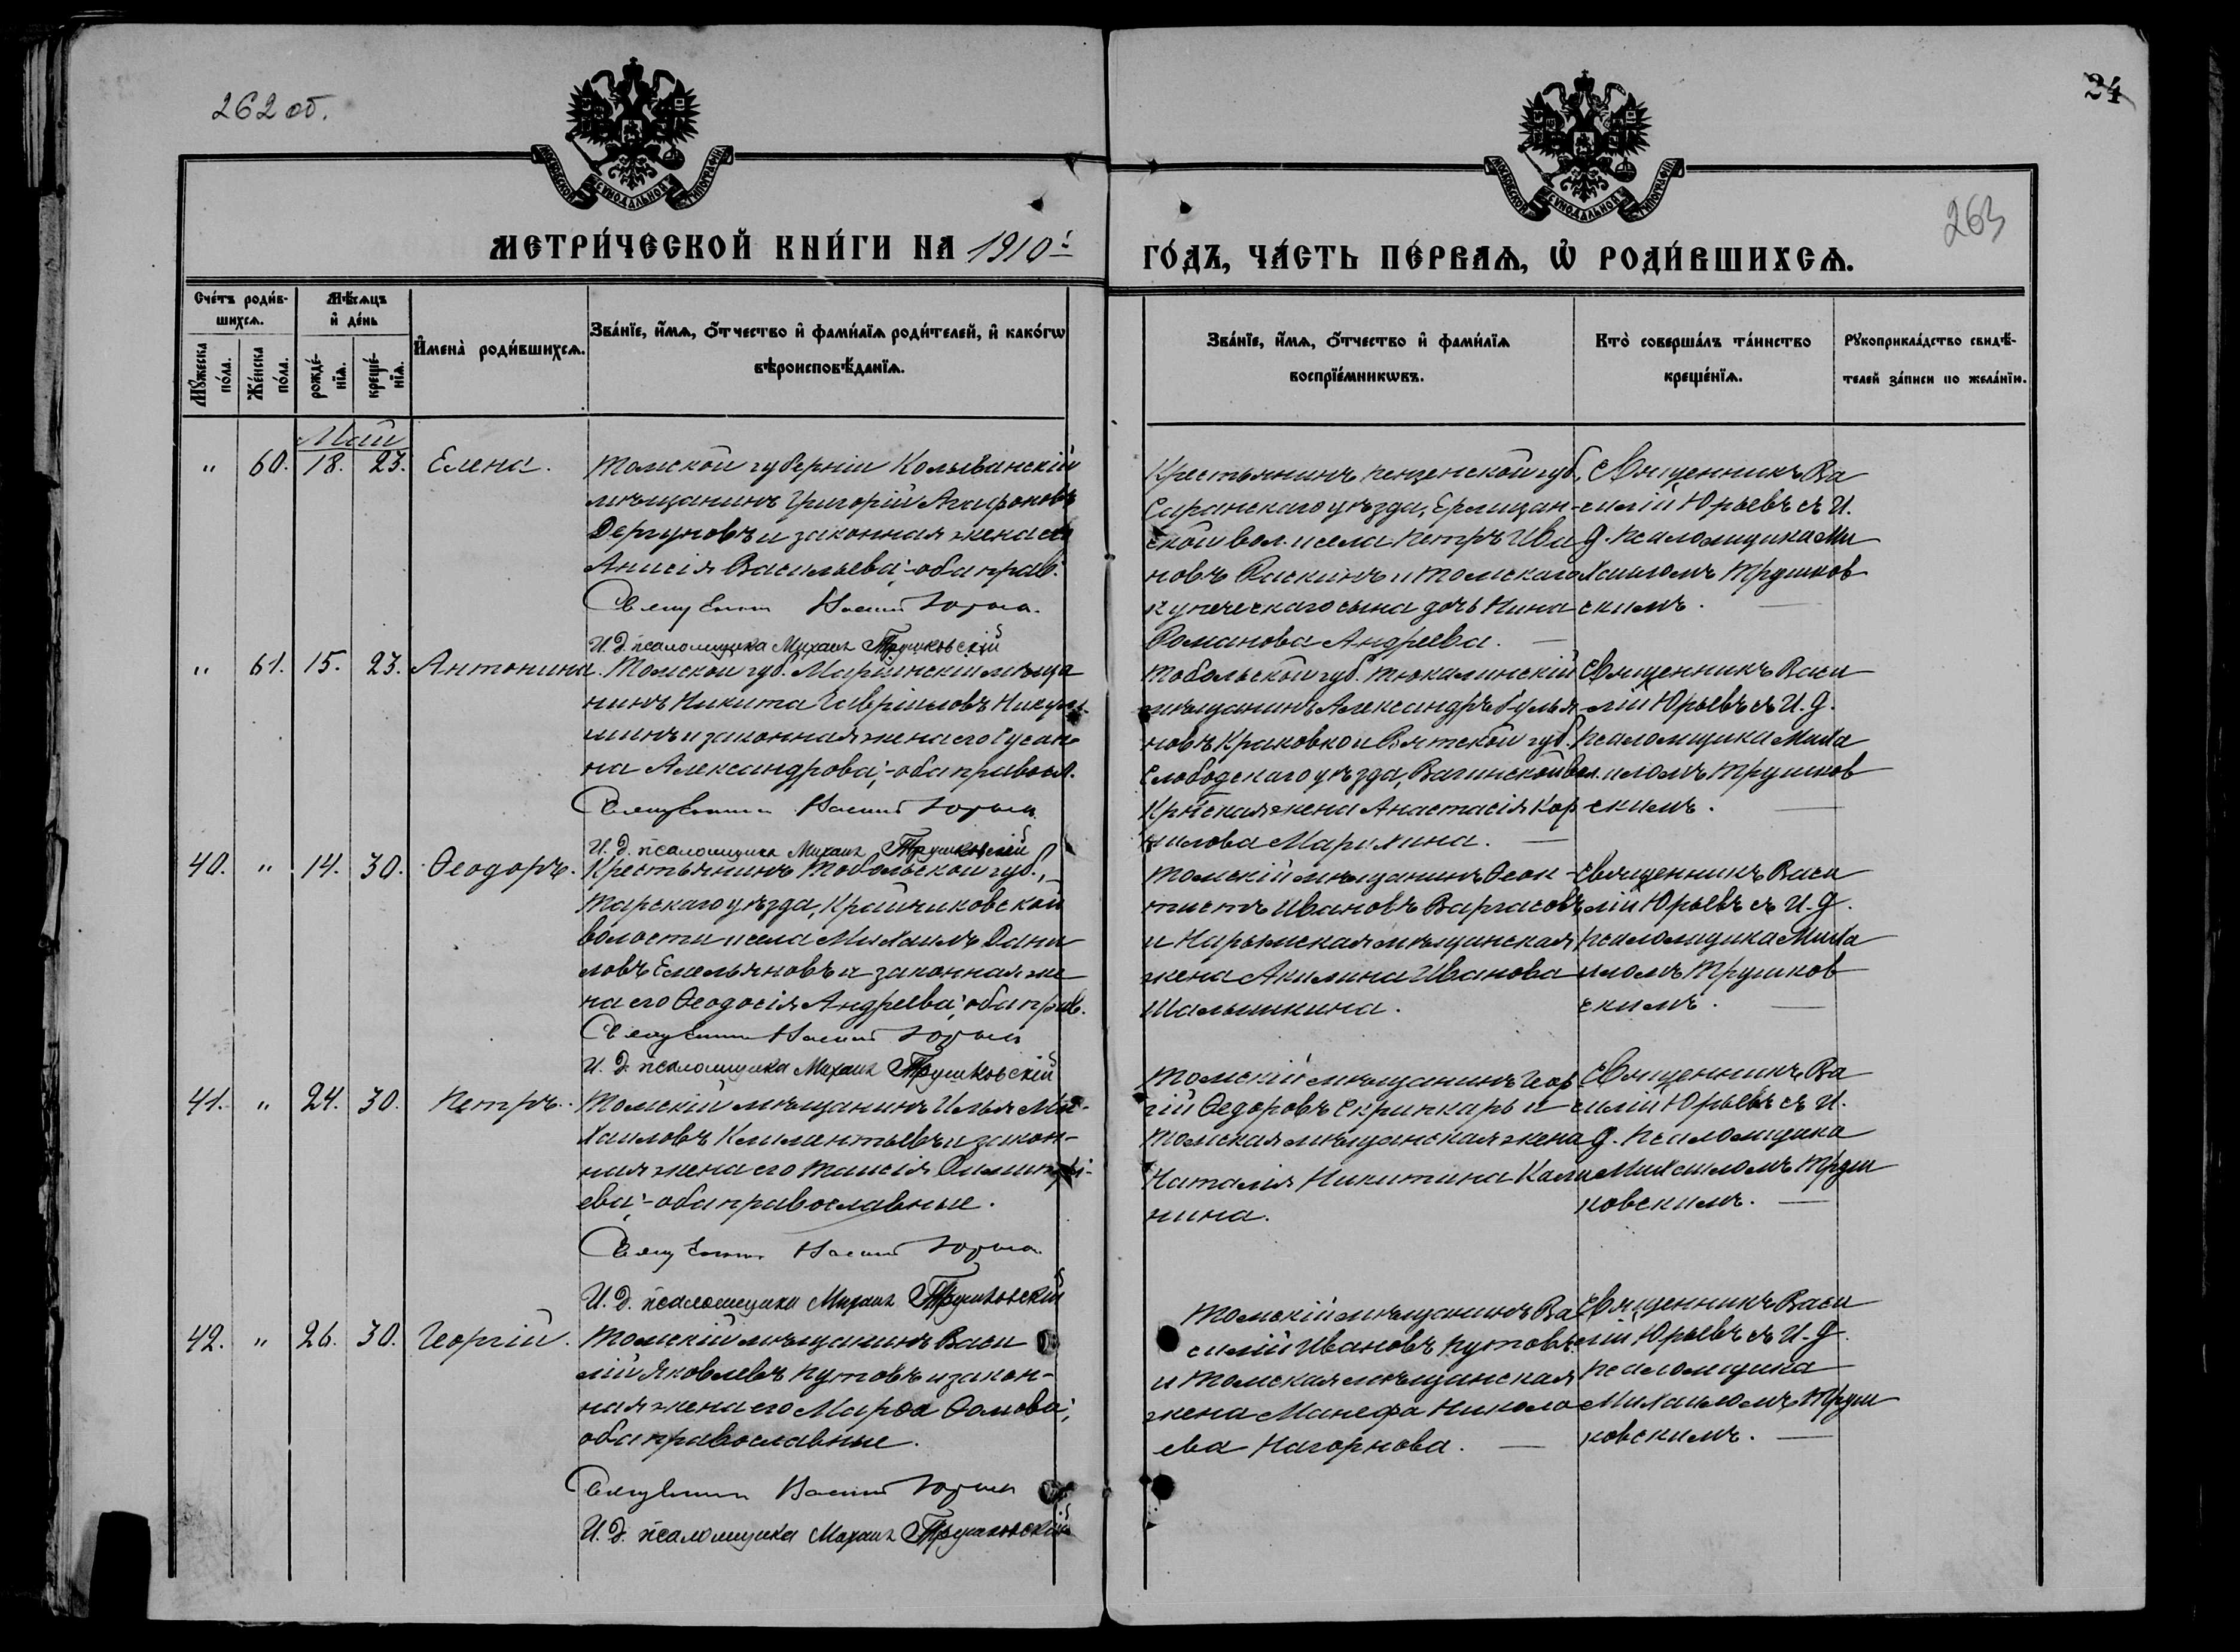 262 об.
24
263
МОСКОВСКОЙ СУНОДАЛЬНОЙ ТИПОГРАФІИ
МОСКОВСКОЙ СУНОДАЛЬНОЙ ТИПОГРАФІИ
МЕТРИ́ЧЕСКОЙ КНИ́ГИ НА 1910й
ГО́ДЪ, ЧА́СТЬ ПЕ́РВАѦ, Ѡ҆ РОДИ́ВШИХСѦ.
Сче́тъ роди́в-
шихсѧ.
Мѣ́сѧцъ
и҆ де́нь
Мꙋ́жеска
по́ла.
Же́нска
по́ла.
рожде́-
нїѧ.
креще́-
нїѧ.
И҆мена̀ роди́вшихсѧ.
Зва́нїе, и҆́мѧ, ѻ҆́тчество и҆ фами́лїѧ роди́телей, и҆ како́гѡ
вѣроисповѣ́данїѧ.
Зва́нїе, и҆́мѧ, ѻ҆́тчество и҆ фами́лїѧ
воспрїе́мникѡвъ.
Кто̀ соверша́лъ та́инство
креще́нїѧ.
Рꙋкоприкла́дство свидѣ́-
телей за́писи по жела́нїю.
Май
" 60. 18. 23. Елена.
Томской губерніи Колыванскій
мѣщанинъ Григорій Агафоновъ
Дергуновъ и законная жена его
Анисія Васильева; - оба прав.
Священникъ Василій Юрьевъ
И. Д. псаломщика Михаилъ Трушковскій
Крестьянинъ Пензенской губ.,
Саранскаго уѣзда,
ской вол. и села Петръ Ива
новъ Раскинъ и Томскаго
купеческаго сына дочь Нина
Романова Андреева. —
Священникъ Ва
силій Юрьевъ съ И.
д. псаломщика Ми
хаиломъ Трушков
скимъ. —
" 61. 15. 23. Антонина.
Томской губ. Маріинскій мѣща
нинъ Никита Гавріиловъ
шинъ и законная жена его Сусан-
на Александрова; - оба правосл.
Священникъ Василій Юрьевъ
И. Д. псаломщика Михаилъ Трушковскій
Тобольской губ. Тюкалинскій
мѣщанинъ Александръ
новъ Краковко и Вятской губ.
Слободскаго уѣзда, Вагинской вол.
Кр̃нская жена Анастасія Кор
нилова Марихина. —
Священникъ Васи
лій Юрьевъ съ И. д.
псаломщика Миха
иломъ Трушков
скимъ. —
40. " 14. 30. Ѳеодоръ.
Крестьянинъ Тобольской губ.,
Тарскаго уѣзда, Крайчиковской
волости и села Михаилъ Дани
ловъ Емельяновъ и законная же
на его Ѳеодосія Андреева; оба прав.
Священникъ Василій Юрьевъ
И. Д. псаломщика Михаилъ Трушковскій
Томскій мѣщанинъ Ѳеок-
тистъ Ивановъ Варгасовъ
и Нарымская мѣщанская
жена Акилина Иванова
Шалышкина.
Священникъ Васи
лій Юрьевъ съ И. д.
псаломщика Миха
иломъ Трушков
скимъ. —
41. " 24. 30. Петръ.
Томскій мѣщанинъ Илья Ми-
хаиловъ Климентьевъ и закон-
ная жена его Таисія
ева; - оба православные.
Священникъ Василій Юрьевъ
И. Д. псаломщика Михаилъ Трушковскій
Томскій мѣщанинъ Геор
гій Ѳедоровъ Скрипкарь и
Томская мѣщанская жена
Наталія Никитина Кали
нина.
Священникъ Ва
силій Юрьевъ съ И.
д. псаломщика
Михаиломъ Труш
ковскимъ. —
42. " 26. 30. Георгій.
Томскій мѣщанинъ Васи
лій Яковлевъ Путовъ и закон-
ная жена его Марѳа Ѳомова;
оба православные.
Священникъ Василій Юрьевъ
И. Д. псаломщика Михаилъ Трушковскій
Томскій мѣщанинъ Ва
силій Ивановъ Путовъ
и Томская мѣщанская
жена Манефа Никола
ева Нагорнова. —
Священникъ Васи
лій Юрьевъ съ И. д.
псаломщика
Михаиломъ Труш
ковскимъ. —